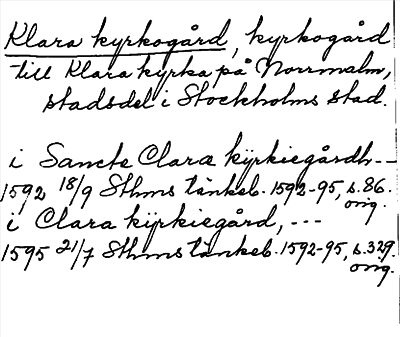 Klara kyrkogård, kyrkogård
till Klara kyrka på Norrmalm,
stadsdel i Stockholms stad.
i Sancte Claræ kÿrkiegårdh--
1592 18/9 Sthms tänkeb. 1592-95, s. 86.
orig.
i Clara kÿrkiegård, ---
1595 21/7 Sthms tänkeb. 1592-95, s. 329
orig.